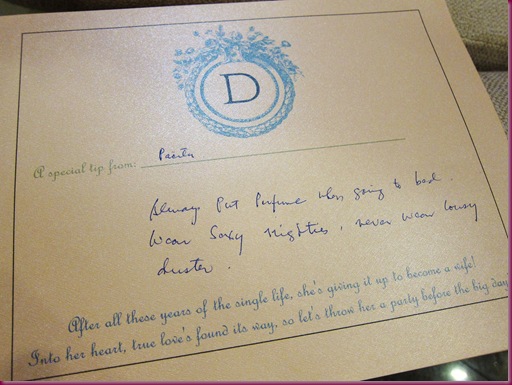 D
A special tip from:
Always Put Perfume when going to bed.
Wear Sexy nighties, never wear lousy
duster.
After all these years of the single life, she's giving it up to become a wife!
Into her heart, true love's found its way, so let's throw her a party before the big day